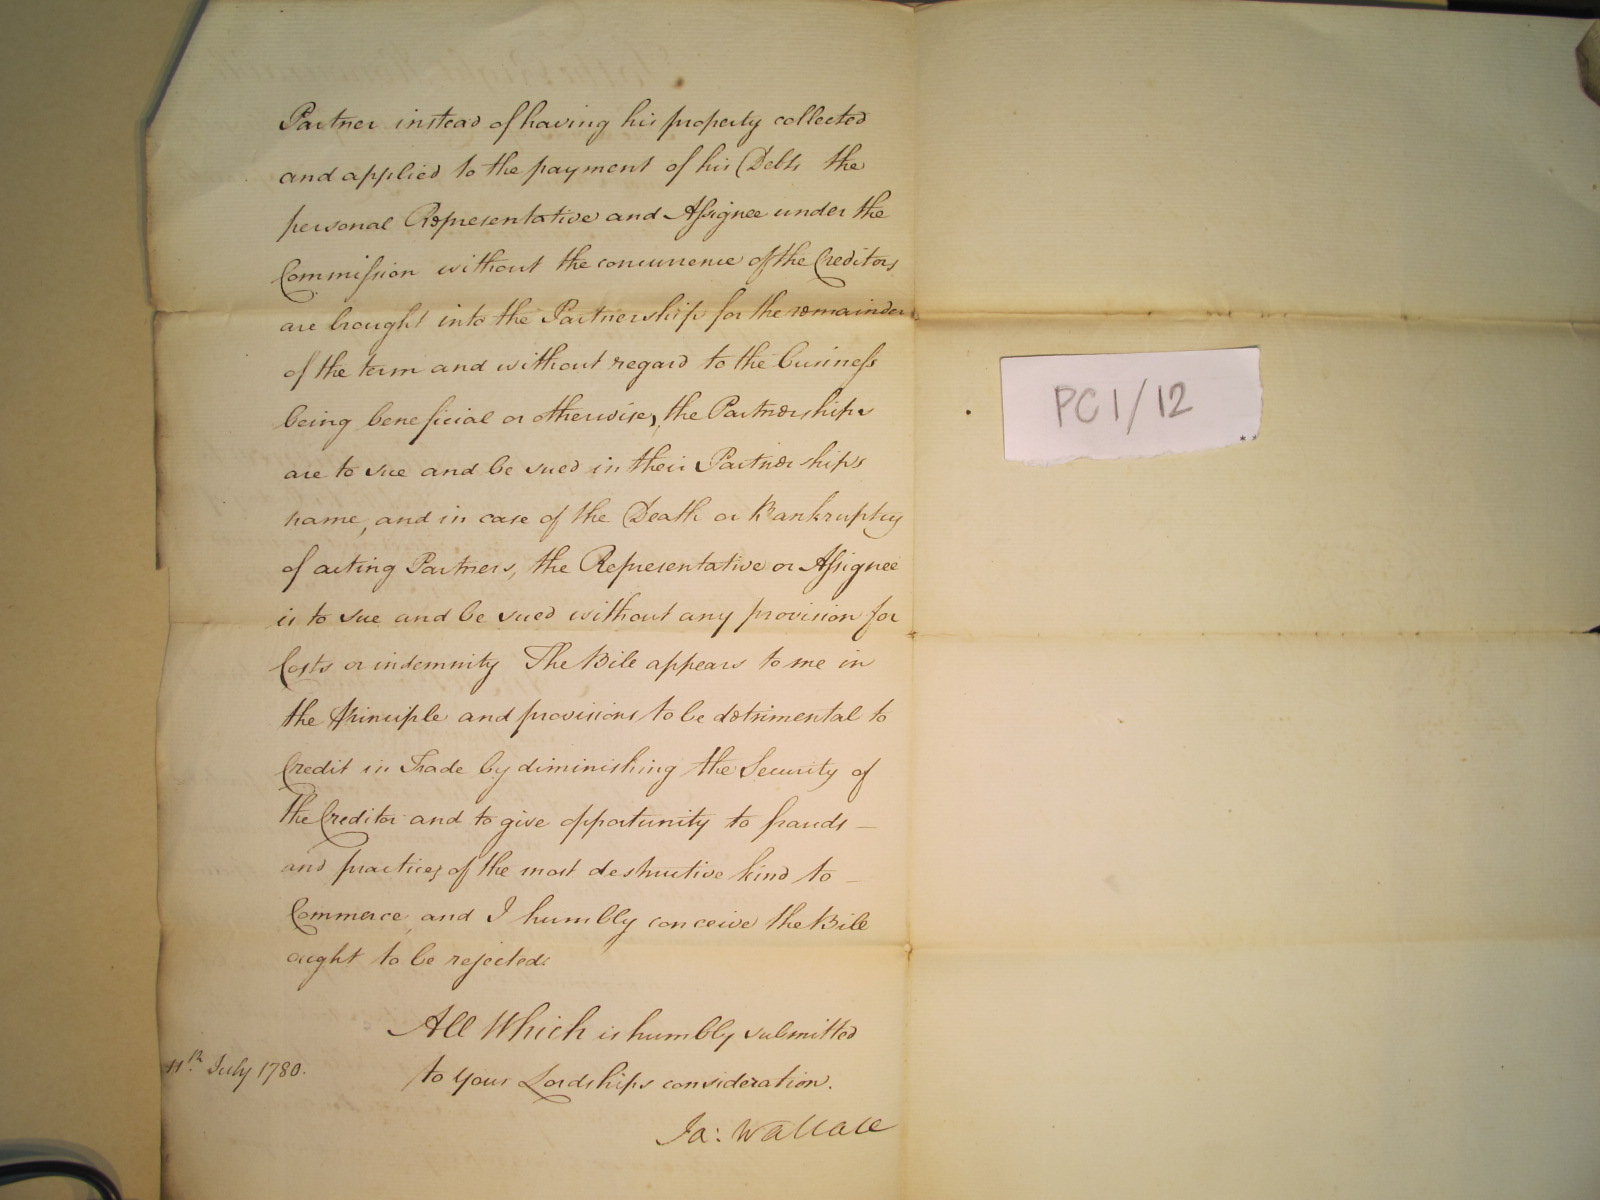 Partner instead of having his property collected
and applied to the payment of his Debts the
personal Representative and Assignee under the
Commission without the concurrence of the Creditors
are brought into the Partnership for the remainder
of the term and without regard to the business
being beneficial or otherwise, the Partnerships
are to sue and be sued in their Partnerships
name, and in case of the Death or Bankruptcy
of acting Partners, the Representative or Assignee
is to sue and be sued without any provision for
Costs or indemnity The Bill appears to me in
the Principle and provisions to be detrimental to
Credit in Trade by diminishing the Security of
the Creditor and to give opportunity to frauds –
and practices of the most destructive kind to –
Commerce, and I humbly conceive the Bill
ought to be rejected.
All Which is humbly submitted
to your Lordships consideration.
11th July 1780.
Ja: Wallace
PC1/12